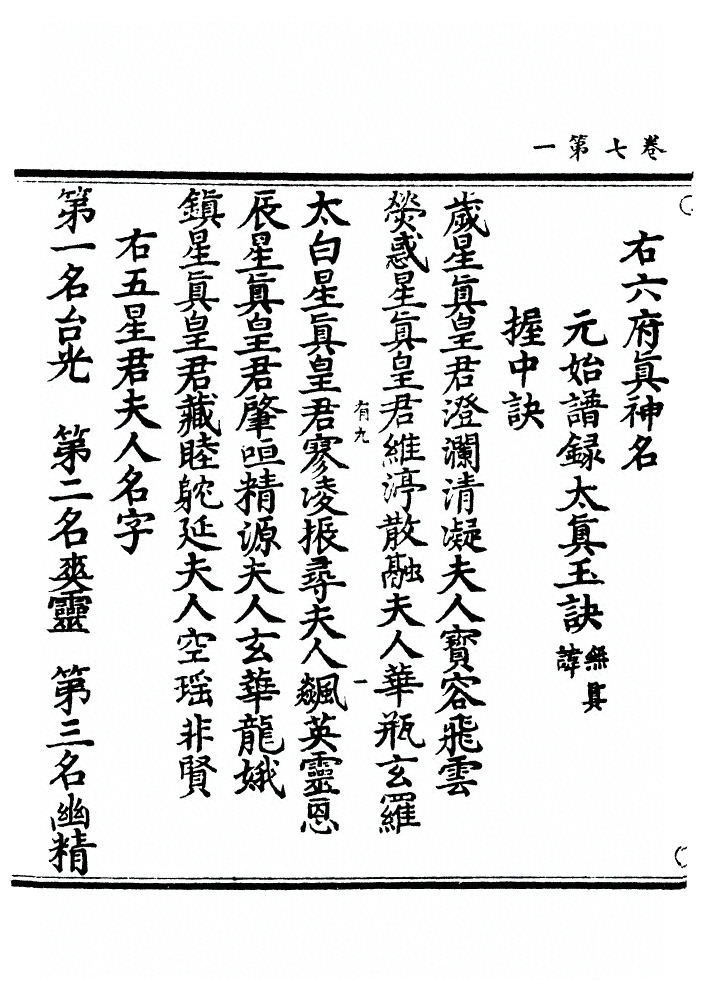 卷七第一
右六府眞神名
元始譜録太眞玉訣無具諱
握中訣
歲星眞皇君澄瀾清凝夫人寶容飛雲
熒惑星眞皇君維渟散融夫人華瓶玄羅
有九一
太白星眞皇君寥凌振尋夫人飆英靈恩
辰星眞皇君肇恒精源夫人玄華龍娥
鎭星眞皇君藏睦躭延夫人空瑶非賢
右五星君夫人名字
第一名台光 第二名爽靈 第三名幽精